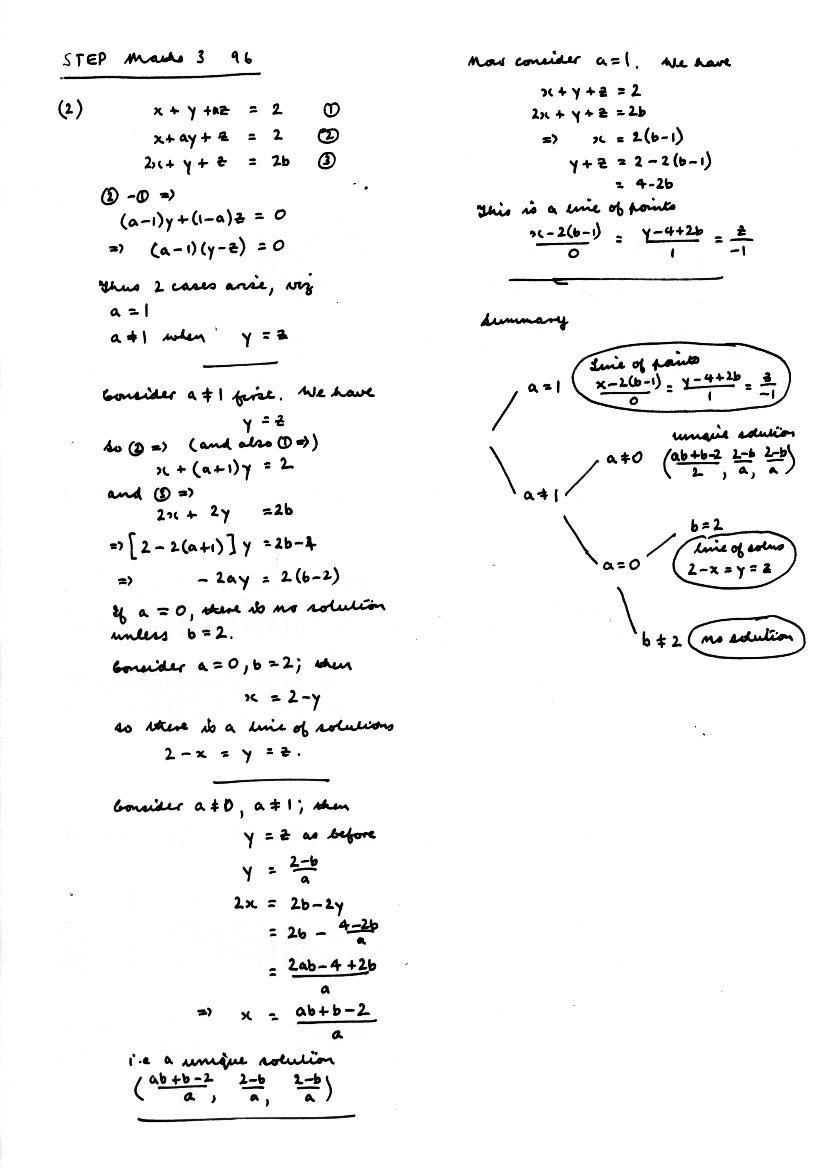 STEP Maths 3 96
(2) x + y + az = 2 ①
x + ay + z = 2 ②
2x + y + z = 2b ③
② - ① =>
(a-1)y + (1-a)z = 0
=> (a-1)(y-z) = 0
Thus 2 cases arise, viz
a = 1
a ≠ 1 when y = z
Consider a ≠ 1 first. We have
y = z
So ② => (and also ① =>)
x + (a+1)y = 2
and ③ =>
2x + 2y = 2b
=> [2 - 2(a+1)] y = 2b-4
=> - 2ay = 2(b-2)
If a = 0, there is no solution
unless b = 2.
Consider a = 0, b = 2; then
x = 2-y
so there is a line of solutions
2 - x = y = z.
Consider a ≠ 0, a ≠ 1; then
y = z as before
y = (2-b)/a
2x = 2b-2y
= 2b - (4-2b)/a
= (2ab-4+2b)/a
=> x = (ab+b-2)/a
i.e a unique solution
((ab+b-2)/a, (2-b)/a, (2-b)/a)
Now consider a = 1. We have
x + y + z = 2
2x + y + z = 2b
=> x = 2(b-1)
y + z = 2 - 2(b-1)
= 4-2b
This is a line of points
(x-2(b-1))/0 = (y-4+2b)/1 = z/-1
Summary
a = 1
Line of points
(x-2(b-1))/0 = (y-4+2b)/1 = z/-1
a ≠ 1
a ≠ 0
unique solution
((ab+b-2)/2, (2-b)/a, (2-b)/a)
a = 0
b = 2
line of solns
2-x = y = z
b ≠ 2
no solution